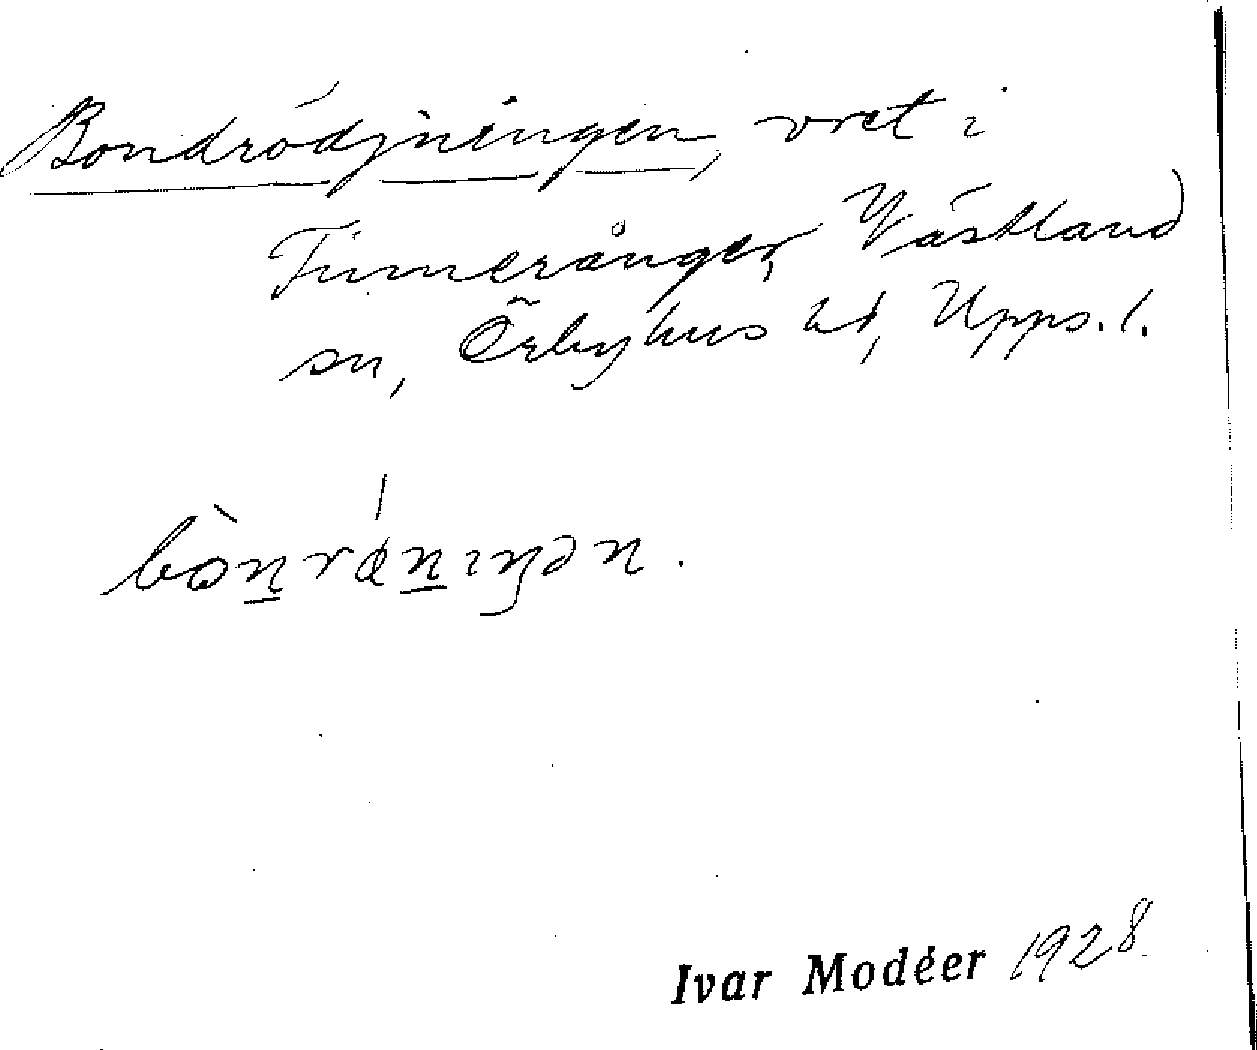 Bondrödjningen, vret i
Fimmerånger, Västland
sn, Örbyhus hd, Upps. l.
bònrǿniŋən.
Ivar Modéer 1928